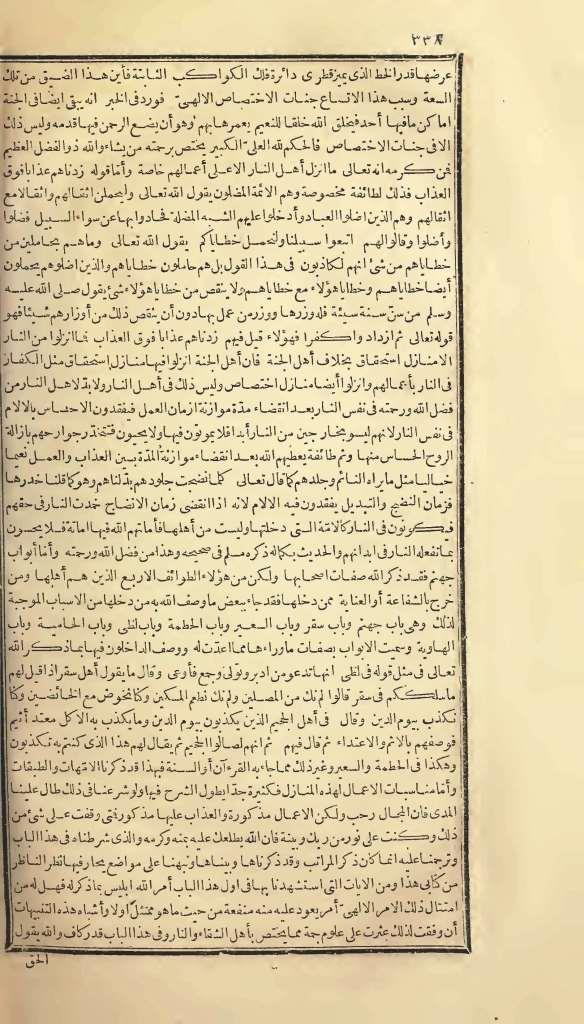 ٣٣٨
عرضها قدر الخط الذي يميز قطري دائرة فلك الكواكب الثابتة فأين هذا الضيق من تلك
السعة وسبب هذا الاتساع جنات الاختصاص الالهي فورد في الخبر انه يبقى ايضا في الجنة
اماكن ما فيها أحد فيخلق الله خلقا للنعيم يعمرها بهم وهو أن يضع الرحمن فيها قدمه وليس ذلك
الا في جنات الاختصاص فالحكم لله العلي الكبير يختص برحمته من يشاء والله ذو الفضل العظيم
فمن كرمه انه تعالى ما انزل أهل النار الا على أعمالهم خاصة وأما قوله زدناهم عذابا فوق
العذاب فذلك لطائفة مخصوصة وهم الائمة المضلون يقول الله تعالى وليحملن اثقالهم واثقالا مع
اثقالهم وهم الذين اضلوا العباد وأدخلوا عليهم الشبه المضلة فحادوا بها عن سواء السبيل فضلوا
وأضلوا وقالوا لهم اتبعوا سبيلنا ولنحمل خطاياكم يقول الله تعالى وما هم بحاملين من
خطاياهم من شئ انهم لكاذبون في هذا القول بل هم حاملون خطاياهم والذين اضلوهم يحملون
أيضا خطاياهم وخطايا هؤلاء مع خطاياهم ولا ينقص من خطايا هؤلاء شئ يقول صلى الله عليه
وسلم من سن سنة سيئة فله وزرها ووزر من عمل بها دون أن ينقص ذلك من أوزارهم شيئا فهو
قوله تعالى ثم ازداد واكفرا فهؤلاء قيل فيهم زدناهم عذابا فوق العذاب فما انزلوا من النار
الا منازل استحقاق بخلاف أهل الجنة فان أهل الجنة انزلوا فيها منازل استحقاق مثل الكفار
في النار بأعمالهم وانزلوا أيضا منازل اختصاص وليس ذلك في أهل النار ولا بد لاهل النار من
فضل الله ورحمته في نفس النار بعد انقضاء مدة موازنة ازمان العمل فيفقدون الاحساس بالالام
في نفس النار لانهم ليسو بخارجين من النار أبدا فلا يموتون فيها ولا يحيون فتتخدر جوارحهم بازالة
الروح الحساس منها وثم طائفة يعطيهم الله بعد انقضاء موازنة المدة بين العذاب والعمل نعيما
خياليا مثل ما يراه النائم وجلدهم كما قال تعالى كلما نضجت جلودهم بدلناهم وهو كما قلنا خدرها
فزمان النضج والتبديل يفقدون فيه الالام لانه اذا انقضى زمان الانضاج خمدت النار في حقهم
فيكونون في النار كالامة التي دخلتها وليست من أهلها فأماتهم الله فيها اماتة فلا يحسون
بما تفعله النار في ابدانهم والحديث بكماله ذكره مسلم في صحيحه وهذا من فضل الله ورحمته وأما أبواب
جهنم فقد ذكر الله صفات اصحابها ولكن من هؤلاء الطوائف الاربع الذين هم أهلها ومن
خرج بالشفاعة أو العناية ممن دخلها فقد جاء ببعض ما وصف الله به من دخلها من الاسباب الموجبة
لذلك وهي باب جهنم وباب سقر وباب السعير وباب الحطمة وباب لظى وباب الحامية وباب
الهاوية وسميت الابواب بصفات ما وراءها مما اعدت له ووصف الداخلون فيها بما ذكر الله
تعالى في مثل قوله في لظى انها تدعو من ادبر وتولى وجمع فأوعى وقال ما يقول أهل سقر اذا قيل لهم
ما سلككم في سقر قالوا لم نك من المصلين ولم نك نطعم المسكين وكنا نخوض مع الخائضين وكنا
نكذب بيوم الدين وقال في أهل الجحيم الذين يكذبون بيوم الدين وما يكذب به الا كل معتد أثيم
فوصفهم بالاثم والاعتداء ثم قال فيهم ثم انهم لصالوا الجحيم ثم يقال لهم هذا الذي كنتم به تكذبون
وهكذا في الحطمة والسعير وغير ذلك مما جاء به القرءآن أو السنة فهذا قد ذكرنا الامهات والطبقات
وأما مناسبات الاعمال لهذه المنازل فكثيرة جدا يطول الشرح فيها ولو شرعنا في ذلك طال علينا
المدى فان المجال رحب ولكن الاعمال مذكورة والعذاب عليها مذكور فمتى وقفت على شئ من
ذلك وكنت على نور من ربك وبينة فان الله يطلعك عليه بمنه وكرمه والذي شرطناه في هذا الباب
وترجمنا عليه انما كان ذكر المراتب وقد ذكرناها وبيناها ونبهنا على مواضع يحار فيها نظر الناظر
من كتابي هذا ومن الايات التي استشهدنا بها في اول هذا الباب أمر الله ابليس بما ذكر له فهل له من
امتثال ذلك الامر الالهي أمر يعود عليه منه منفعة من حيث ما هو ممتثل اولا وأشباه هذه التنبيهات
أن وفقت لذلك عثرت على علوم جمة مما يختص بأهل الشقاء والنار وفي هذا الباب قدر كاف والله يقول
الحق